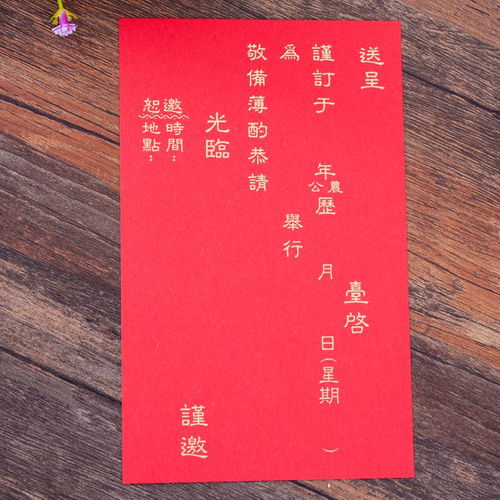 送呈
臺啓
謹訂于 年 公農歷 月 日(星期 )
為 舉行
敬備薄酌恭請
光臨
恕邀
時間：
地點：
謹邀